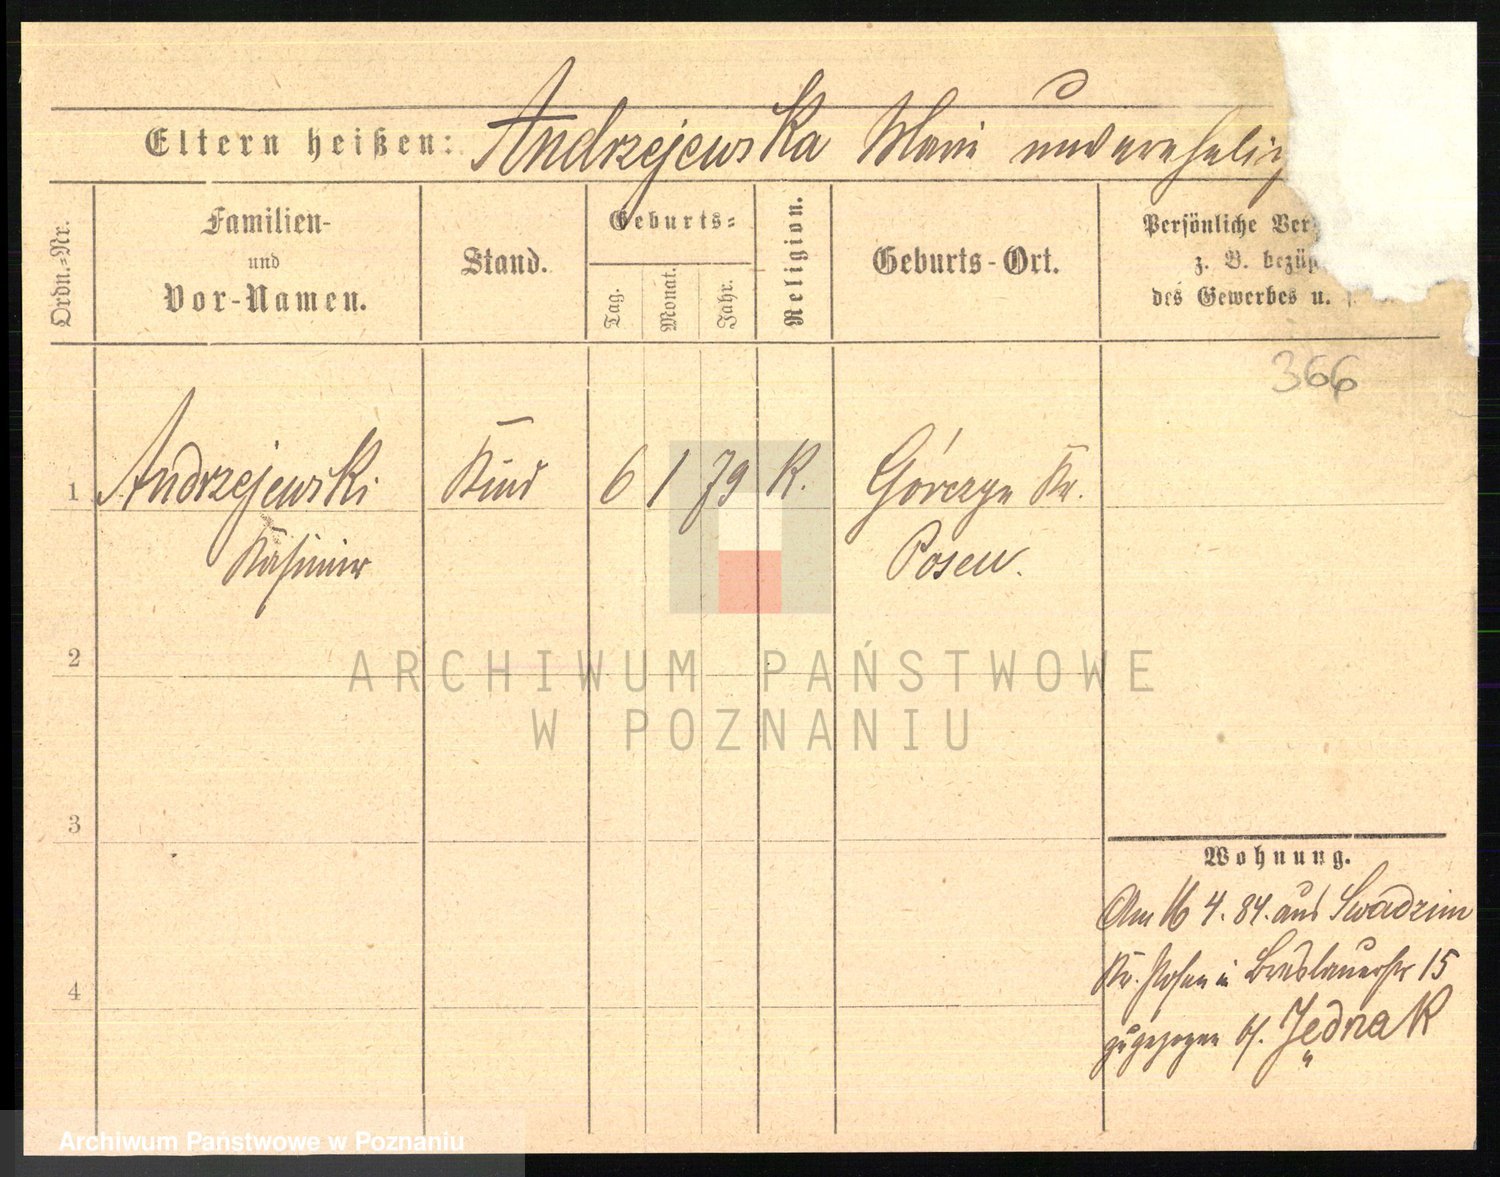 Eltern heißen: Andrzejewska Marie unverehelig
Ordn.-Nr.
Familien-
und
Vor-Namen.
Stand.
Geburts-
Tag.
Monat.
Jahr.
Religion.
Geburts-Ort.
Persönliche Ver
z. B. bezüg
des Gewerbes u.
366
1 Andrzejewski Kind 6 1 79 K. Górczyn Kr.
Kasimir Posen.
2
ARCHIWUM PAŃSTWOWE
W POZNANIU
3
Wohnung.
Am 16 4. 84. aus Swadzim
Kr. Posen in Breslauerstr 15
4
zugezogen bei Jednak
Archiwum Państwowe w Poznaniu